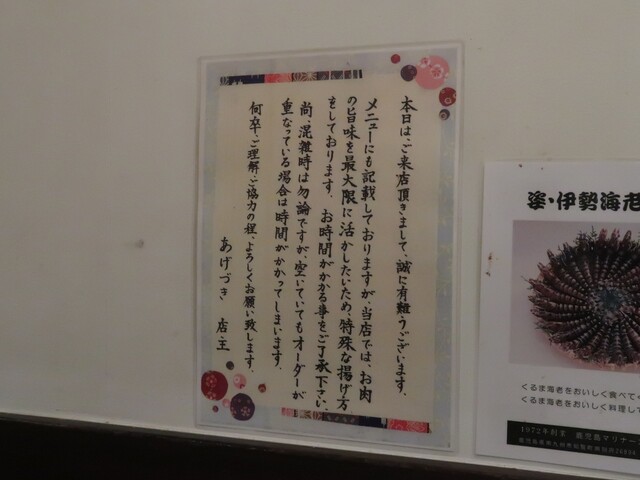 本日は、ご来店頂きまして、誠に有難うございます。
メニューにも記載しておりますが、当店では、お肉
の旨味を最大限に活かしたいため、特殊な揚げ方
をしております。お時間がかかる事をご了承下さい。
尚、混雑時は勿論ですが、空いていてもオーダーが
重なっている場合は時間がかかってしまいます。
何卒、ご理解、ご協力の程、よろしくお願い致します。
あげづき 店主
姿・伊勢海老
くるま海老をおいしく食べて
くるま海老をおいしく料理して
1972年創業 鹿児島マリナー